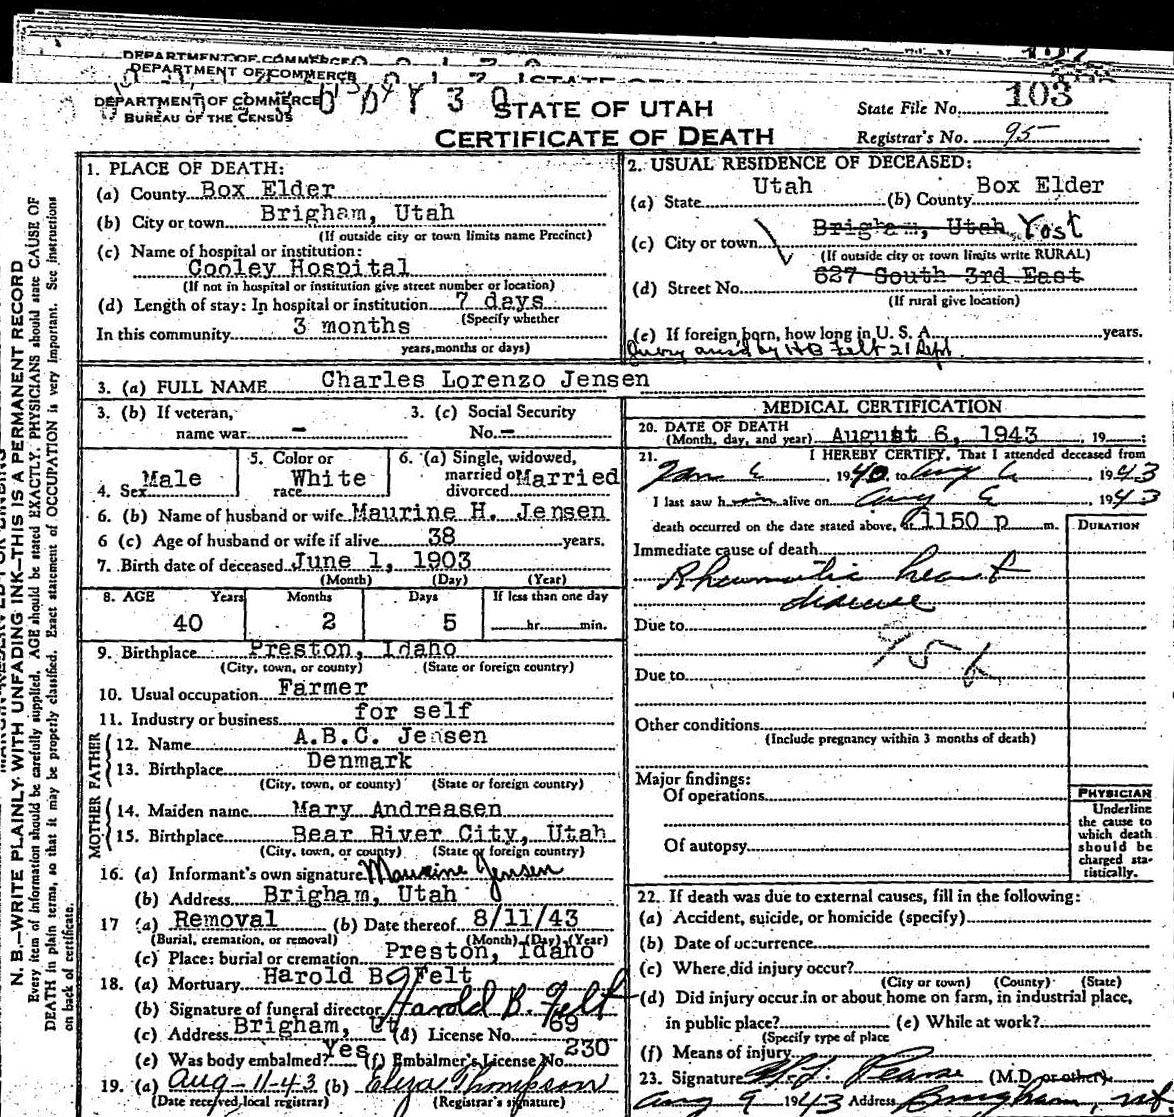 DEPARTMENT OF COMMERCE
DEPARTMENT OF COMMERCE
DEPARTMENT OF COMMERCE
BUREAU OF THE CENSUS
STATE OF UTAH
CERTIFICATE OF DEATH
State File No. 103
Registrar's No. 95
N. B.—WRITE PLAINLY, WITH UNFADING INK—THIS IS A PERMANENT RECORD
Every item of information should be carefully supplied. AGE should be stated EXACTLY. PHYSICIANS should state CAUSE OF
DEATH in plain terms, so that it may be properly classified. Exact statement of OCCUPATION is very important. See instructions
on back of certificate.
1. PLACE OF DEATH:
(a) County Box Elder
(b) City or town Brigham, Utah
(If outside city or town limits name Precinct)
(c) Name of hospital or institution:
Cooley Hospital
(If not in hospital or institution give street number or location)
(d) Length of stay: In hospital or institution 7 days
(Specify whether
In this community 3 months
years, months or days)
2. USUAL RESIDENCE OF DECEASED:
(a) State Utah (b) County Box Elder
(c) City or town Brigham, Utah Yost
(If outside city or town limits write RURAL)
(d) Street No. 627 South 3rd East
(If rural give location)
(e) If foreign born, how long in U. S. A. years.
by HB Felt 21 Sept.
3. (a) FULL NAME Charles Lorenzo Jensen
3. (b) If veteran, name war –
3. (c) Social Security No. –
4. Sex Male
5. Color or race White
6. (a) Single, widowed, married or divorced Married
6. (b) Name of husband or wife Maurine H. Jensen
6 (c) Age of husband or wife if alive 38 years.
7. Birth date of deceased June 1, 1903
(Month) (Day) (Year)
8. AGE Years Months Days If less than one day
40 2 5 hr. min.
9. Birthplace Preston, Idaho
(City, town, or county) (State or foreign country)
10. Usual occupation Farmer
11. Industry or business for self
FATHER
12. Name A.B.C. Jensen
13. Birthplace Denmark
(City, town, or county) (State or foreign country)
MOTHER
14. Maiden name Mary Andreasen
15. Birthplace Bear River City, Utah
(City, town, or county) (State or foreign country)
16. (a) Informant's own signature Maurine Jensen
(b) Address Brigham, Utah
17 (a) Removal (b) Date thereof 8/11/43
(Burial, cremation, or removal) (Month) (Day) (Year)
(c) Place: burial or cremation Preston, Idaho
18. (a) Mortuary Harold B. Felt
(b) Signature of funeral director Harold B. Felt
(c) Address Brigham, Ut (d) License No. 69
(e) Was body embalmed? Yes (f) Embalmer's License No. 230
19. (a) Aug-11-43 (b) Eliza Thompson
(Date received local registrar) (Registrar's signature)
MEDICAL CERTIFICATION
20. DATE OF DEATH
(Month, day, and year) August 6, 1943, 19
21. I HEREBY CERTIFY, That I attended deceased from
Jan 6, 1940, to Aug 6, 1943
I last saw him alive on Aug 6 1943
death occurred on the date stated above, at 1150 p m.
DURATION
Immediate cause of death
Rheumatic heart
disease
Due to
Due to
Other conditions
(Include pregnancy within 3 months of death)
Major findings:
Of operations
Of autopsy
PHYSICIAN
Underline
the cause to
which death
should be
charged sta-
tistically.
22. If death was due to external causes, fill in the following:
(a) Accident, suicide, or homicide (specify)
(b) Date of occurrence
(c) Where did injury occur?
(City or town) (County) (State)
(d) Did injury occur in or about home on farm, in industrial place,
in public place? (e) While at work?
(Specify type of place
(f) Means of injury
23. Signature Pearse (M.D. or other)
Aug 9 1943 Address Brigham, Ut